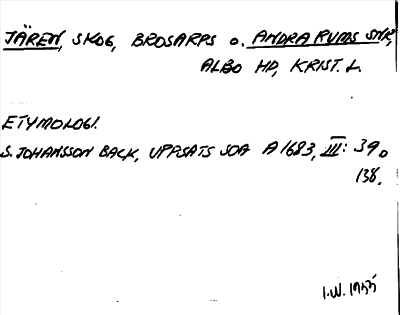 JÄREN, SKOG, BROSARPS O. ANDRARUMS SNR,
ALBO HD, KRIST. L.
ETYMOLOGI.
S. JOHANSSON BACK, UPPSATS SOA A 1683, III: 39 o
138.
I.W. 1955